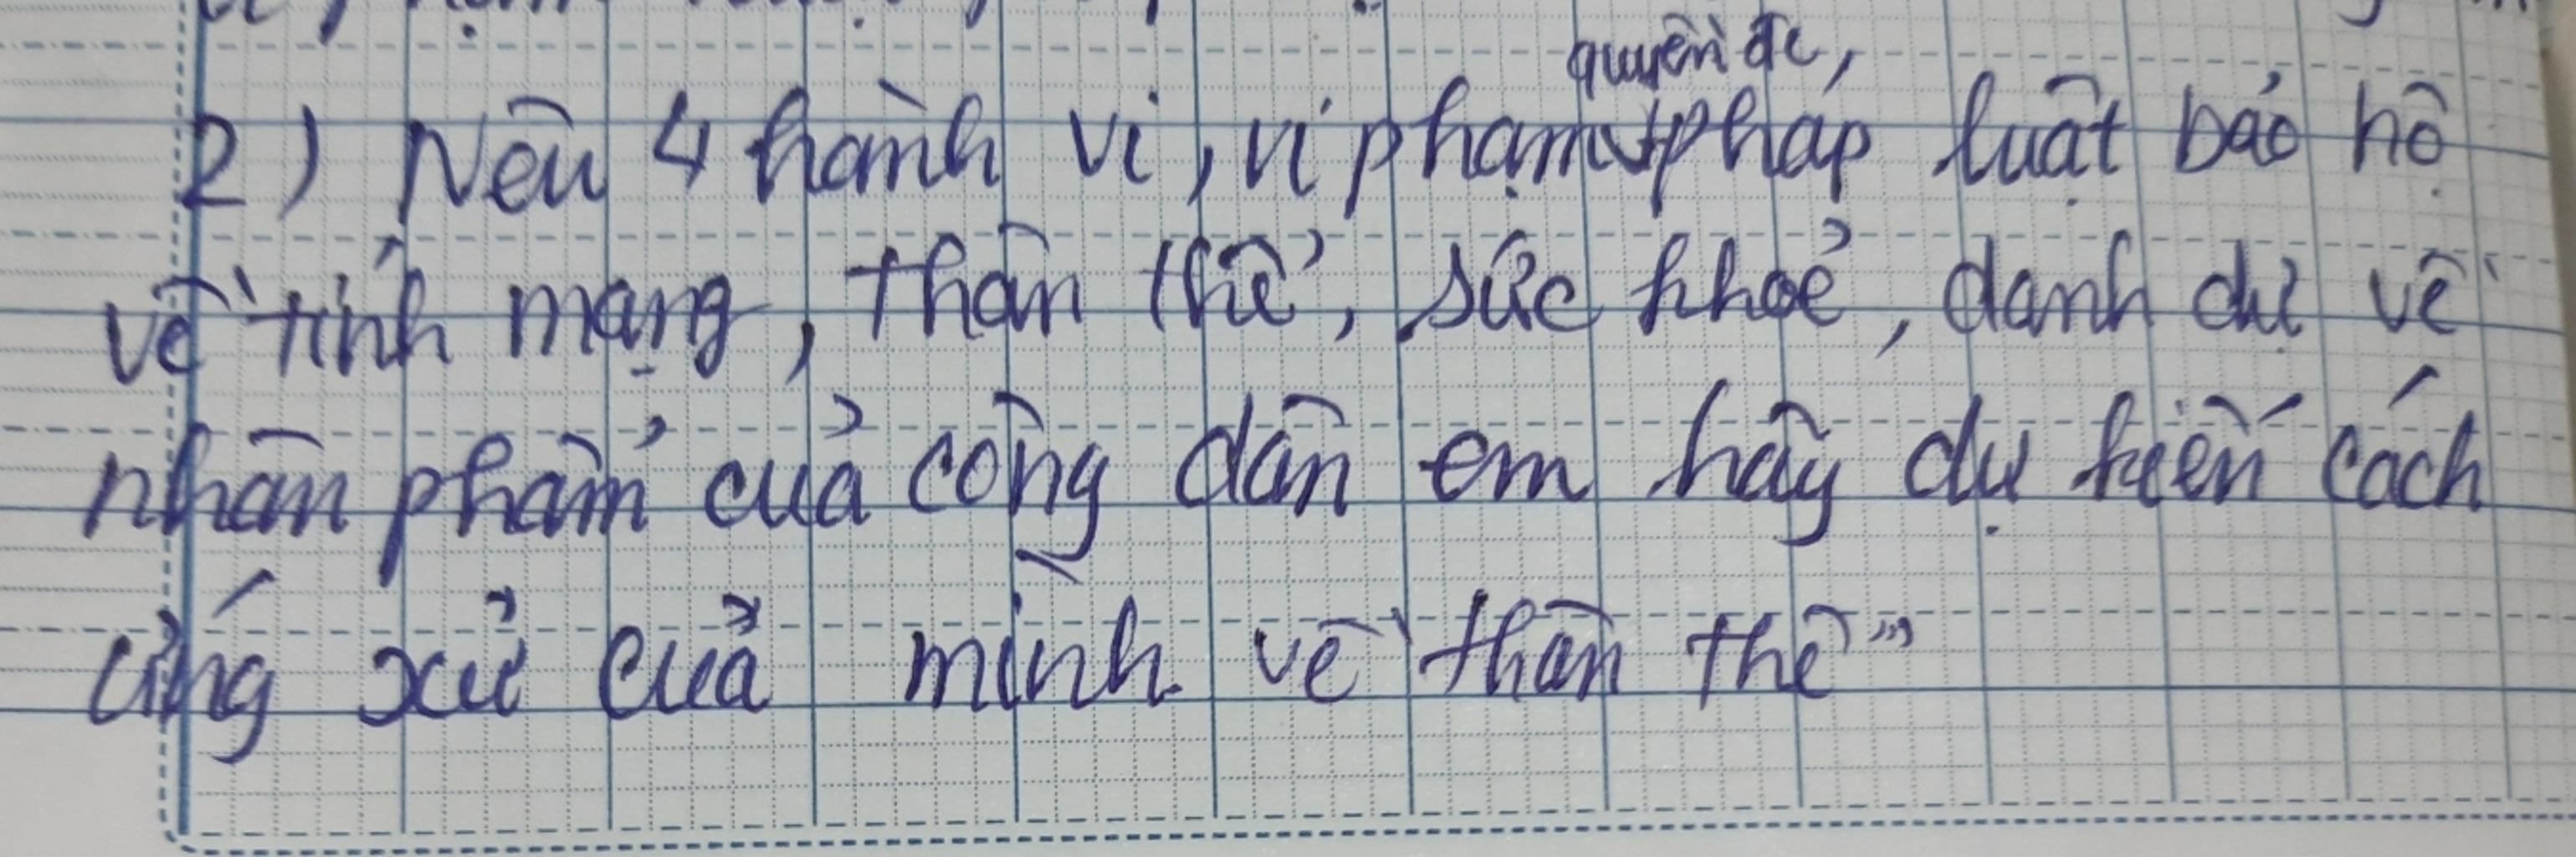 quyền đc,
2) Nêu 4 hành vi, vi phạm pháp luật bảo hộ
về tính mạng, thân thể, sức khoẻ, danh dự về
nhân phẩm của công dân em hãy dự kiến cách
ứng xử của mình về thân thể"